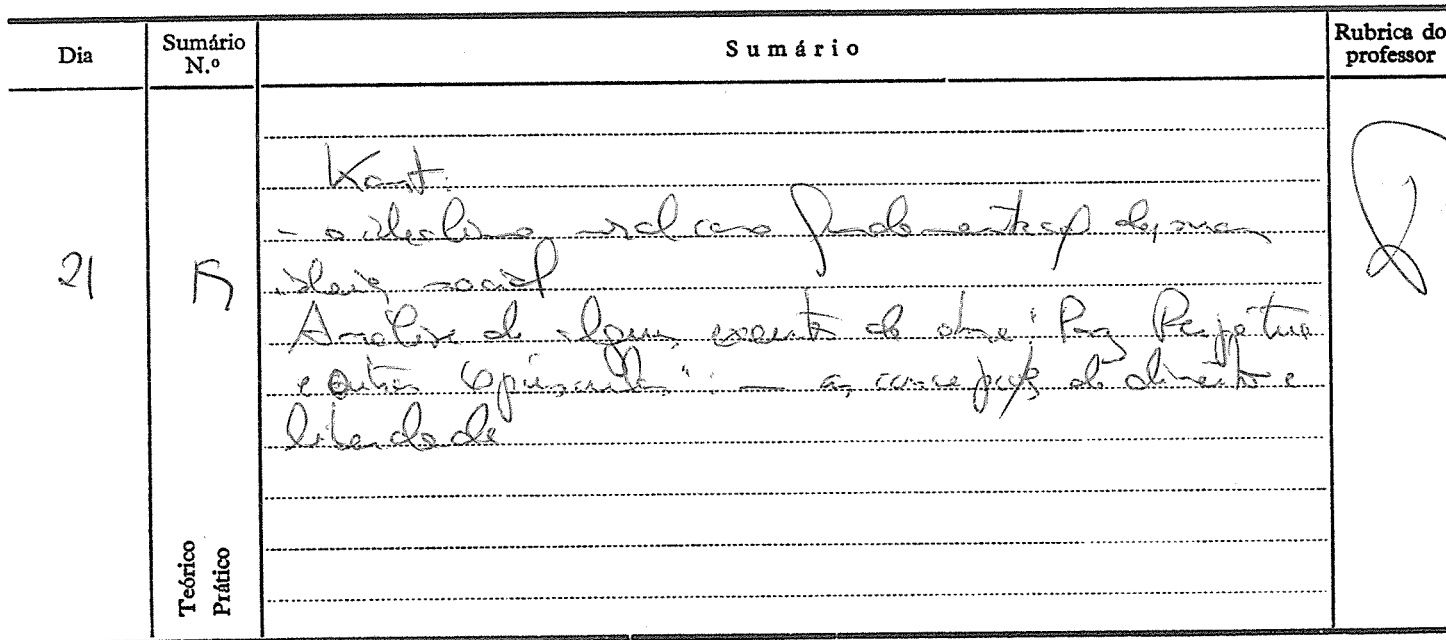 Dia
Sumário N.º
Sumário
Rubrica do professor
21
Kant:
- o idealismo moral como fundamentação de uma
ideia social
Análise de alguns excertos da obra: "Paz Perpétua
e outros Opúsculos": — as concepções de direito e
liberdade
Teórico
Prático